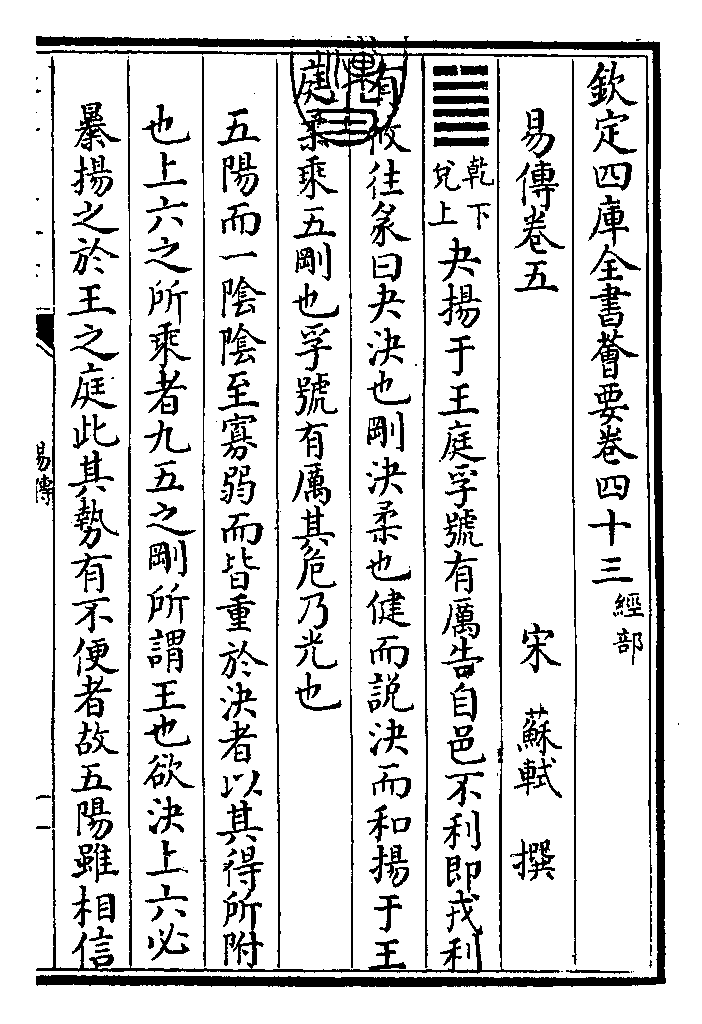 欽定四庫全書薈要卷四十三 經部
易傳卷五 宋 蘇軾 撰
乾下兌上 夬揚于王庭孚號有厲告自邑不利即戎利
有攸往彖曰夬決也剛決柔也健而說決而和揚于王
庭柔乘五剛也孚號有厲其危乃光也
五陽而一陰陰至寡弱而皆重於決者以其得所附
也上六之所乘者九五之剛所謂王也欲決上六必
暴揚之於王之庭此其勢有不便者故五陽雖相信
易傳
一